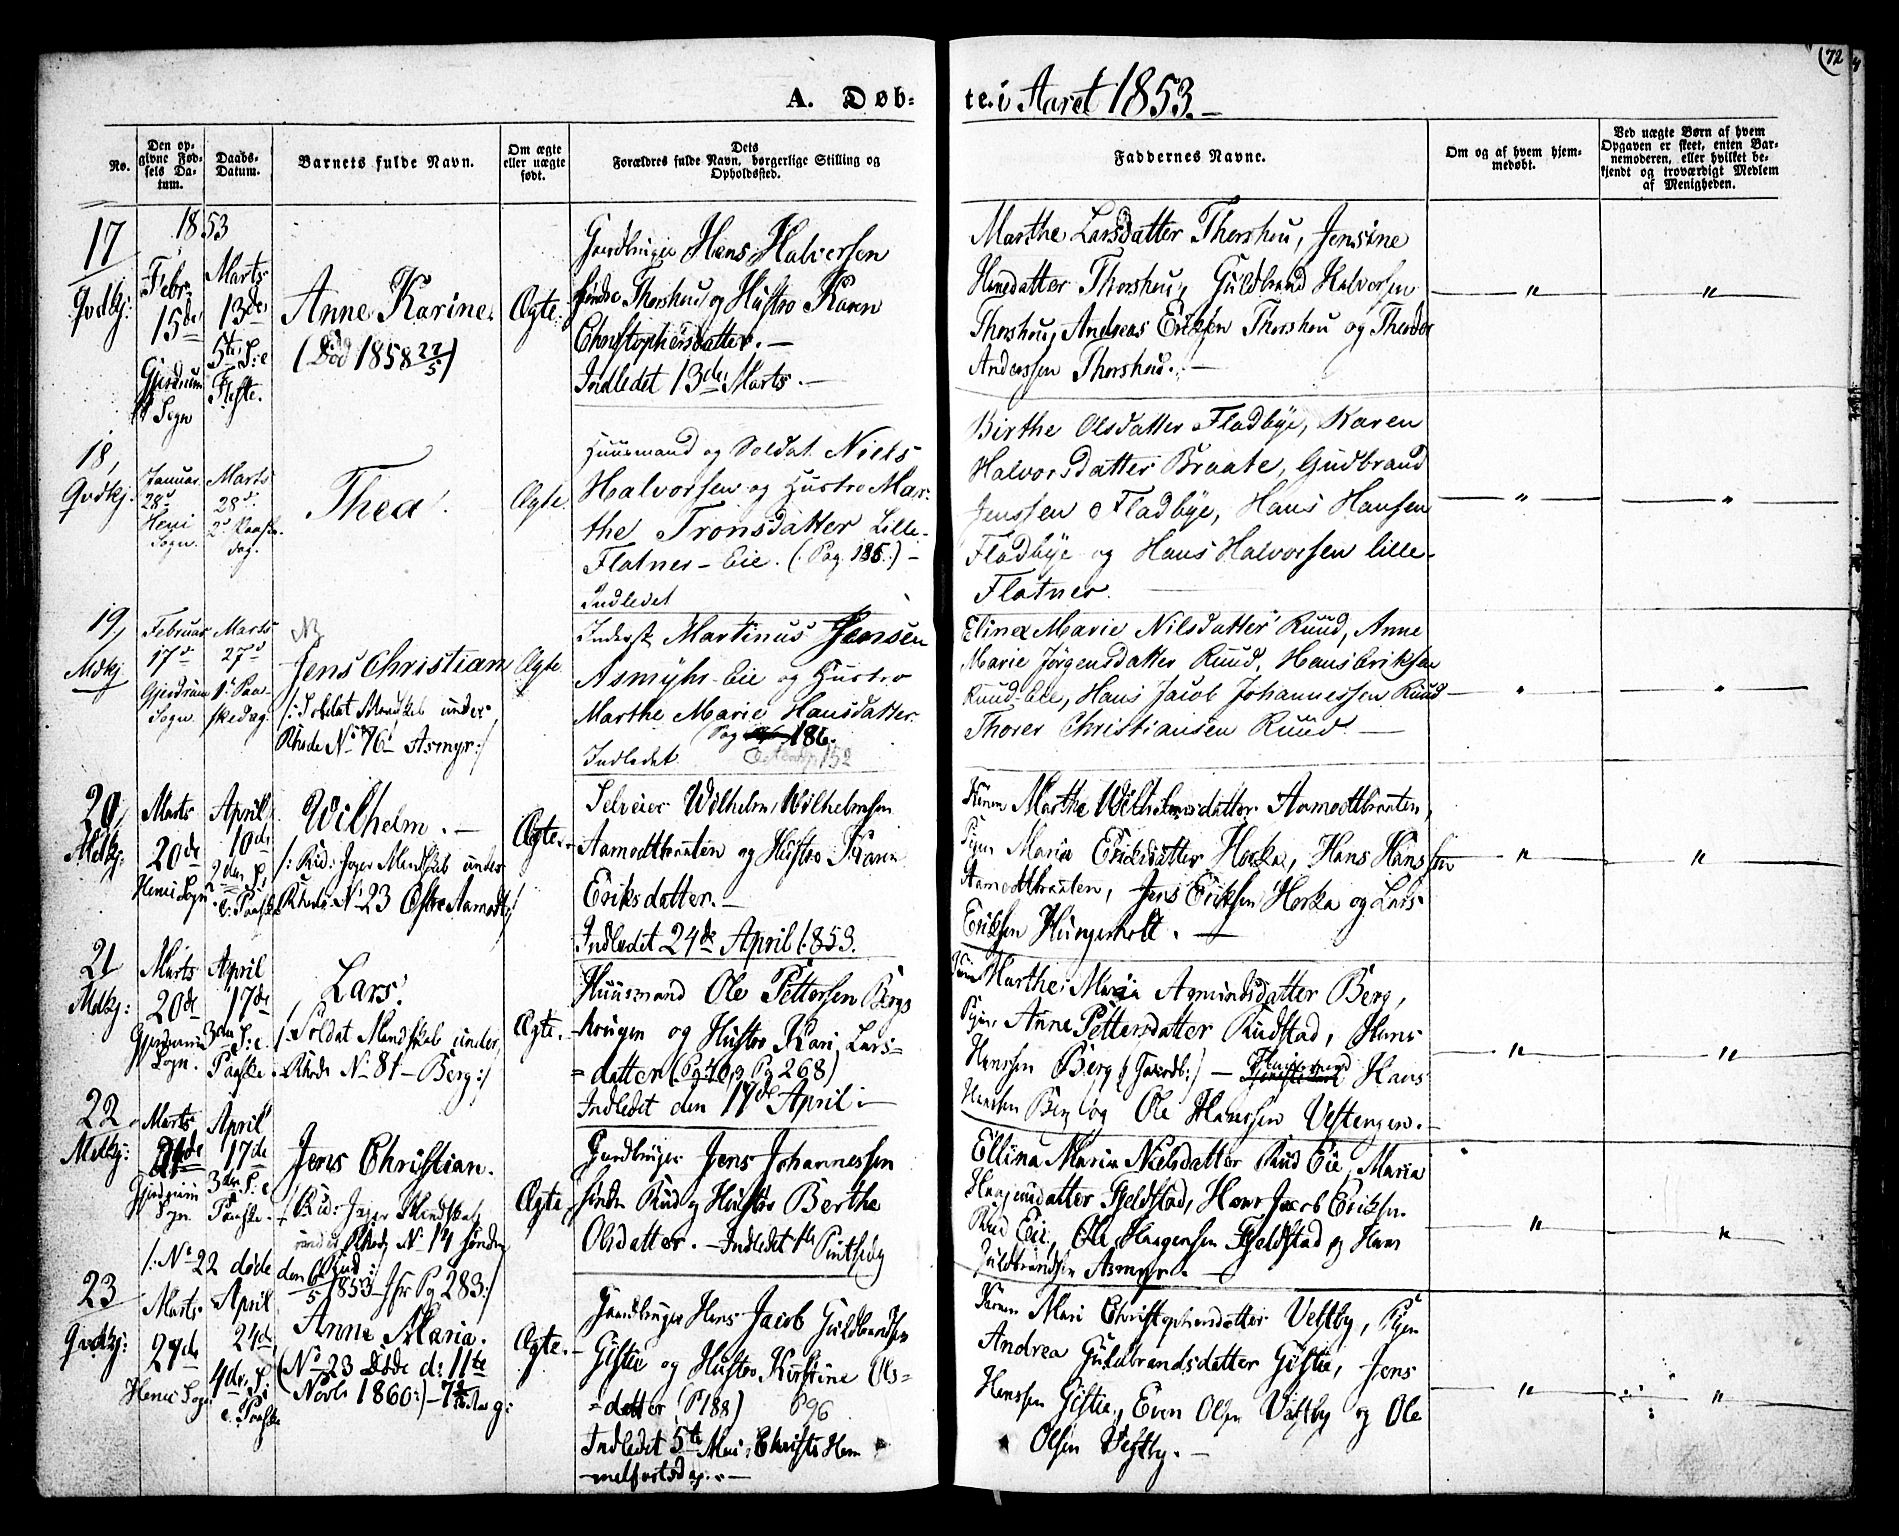 72
A. Døb-
te. i Aaret 1853. –
No.
Den op-
givne Fød-
sels Da-
tum.
Daabs-
Datum.
Barnets fulde Navn.
Om ægte
eller uægte
født.
Dets
Forældres fulde Navn, borgerlige Stilling og
Opholdssted.
Faddernes Navne.
Om og af hvem hjem-
medøbt.
Ved uægte Børn af hvem
Opgaven er skeet, enten Bar-
nemoderen, eller hvilket be-
kjendt og troværdigt Medlem
af Menigheden.
17
1853
Febr.
15de
Gjerdrum
Sogn
Marts
13de
5te S: e
Faste.
Anne Karine.
(Død 1858 27/5)
Ægte.
Gaardbruger Hans Halversen
søndre Thorshoug og Hustro Karen
Christophersdatter. –
Indledet 13de Marts. –
Marthe Larsdatter Thorshou, Jensine
Hansdatter Thorshou, Guldbrand Halvorsen
Thorshou, Andreas Eriksen Thorshou og Theodor
Anderssen Thorshoug. –
18,
Januar
28d
Heni
Sogn.
Marts
28d
2d Paaske-
dag.
Thea
Ægte
Huusmand og Soldat Niels
Halvorsen og Hustro Mar-
the Tronsdatter Lille-
Flatner – Eie. (Pag. 185.) –
Indledet
Birthe Olsdatter Fladbye, Karen
Halvorsdatter Braate, Gudbrand
Jenssen Fladbye, Hans Hansen
Fladbye og Hans Halvorsen lille-
Flatner.
19,
Mdkj
Februar
17d
Gjerdrum
Sogn.
Marts
27d
1d Paa-
skedag.
Jens Christian
/: Soldat Mandskab under
Rhode No 76 – Asmyr :/
Ægte
Inderst Martinus Jensen
Asmyhr-Eie og Hustro
Marthe Marie Hansdatter.
Pag 186.
Indledet
Elina Marie Nilsdatter Ruud, Anne
Marie Jørgensdatter Ruud, Hans Eriksen
Ruud-Eie, Hans Jacob Johannessen Ruud
Thorer Christiansen Ruud. –
20,
Mdkj:
Marts
20de
Heni Sogn
April
10de
2den S:
e: Paaske
Wilhelm. –
/: Rid: Jager Mandskab under
Rhode No 23 Østre Aamodt :/
Ægte.
Selveier Wilhelm Wilhelmsen
Aamodtbraaten og Hustro Karen
Eriksdatter. –
Indledet 24de April 1853.
Konen Marthe Wilhelmsdatter Aamodtbraaten,
Pigen Maria Eriksdatter Horka, Hans Hanssen
Aamodtbraaten, Jens Eriksen Horka og Lars
Eriksen Hungerholt. –
21
Mdkj:
Marts
20de
Gjerdrum
Sogn.
April
17de
3die S: e.
Paaske.
Lars.
/: Soldat Mandskab under
Rhode No 81 – Berg :/
Ægte.
Huusmand Ole Pettersen Bergs
hougen og Hustro Kari Lars=
=datter (Pg: 103 Pg 268)
Indledet den 17de April –
Konen Marthe Maria Asmundsdatter Berg,
Pigen Anne Pettersdatter Rudstad, Hans
Hanssen Berg (: Gaardb:) – Huusmand Hans
Hanssen Berg og Ole Hanssen Vestengen. –
22.
Mdkj:
Marts
Gjerdrum
Sogn
April
17de
3die S: e
Paaske.
Jens Christian.
/: Rid: Jager Mandskab
under Rhode No 14 søndre
Rud :/
/: No 22 døde den 6/5 1853 Jfr Pg 283 :/
Ægte
Gaardbruger Jens Johannessen
søndre Rud og Hustro Berthe
Olsdatter. – Indledet 1ste Pintsedag
Ellina Maria Nielsdatter Rud Eie, Maria
Haagensdatter Fjeldstad, Hans Jacob Eriksen
Rud Eie, Ole Haagensen Fjeldstad og Hans
Guldbrandsen Asmyr. –
23
Marts
27de
Heni Sogn
April
24de
4de S:
e. Paaske
Anne Maria.
(No 23 Døde d: 11te
Novbr 1860 :)
Ægte.
Gaardbruger Hans Jacob Guldbrandsen
Gistie og Hustro Kirstine Ols=
=datter (P 188) P96
Indledet 5te Mai, Christi Him
melfartsdag. –
Konen Mari Christophersdatter Vestby, Pigen
Andrea Guldbrandsdatter Gistie, Jens
Hanssen Gistie, Even Olsen Vestby og Ole
Olsen Vestby. –